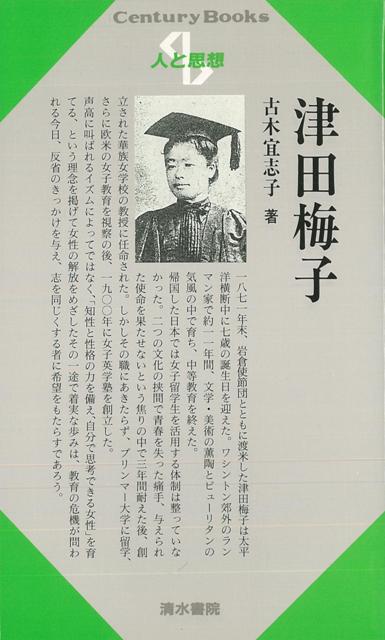 Century Books
人と思想
津田梅子
古木宜志子 著
一八七一年末、岩倉使節団とともに渡米した津田梅子は太平
洋横断中に七歳の誕生日を迎えた。ワシントン郊外のラン
マン家で約一一年間、文学・美術の薫陶とピューリタンの
気風の中で育ち、中等教育を終えた。
帰国した日本では女子留学生を活用する体制は整っていな
かった。二つの文化の狭間で青春を失った痛手、与えられ
た使命を果たせないという焦りの中で三年間耐えた後、創
立された華族女学校の教授に任命された。しかしその職にあきたらず、ブリンマー大学に留学、
さらに欧米の女子教育を視察の後、一九〇〇年に女子英学塾を創立した。
声高に叫ばれるイズムによってではなく、「知性と性格の力を備え、自分で思考できる女性」を育
てる、という理念を掲げて女性の解放をめざしたその一途で着実な歩みは、教育の危機が問わ
れる今日、反省のきっかけを与え、志を同じくする者に希望をもたらすであろう。
清水書院